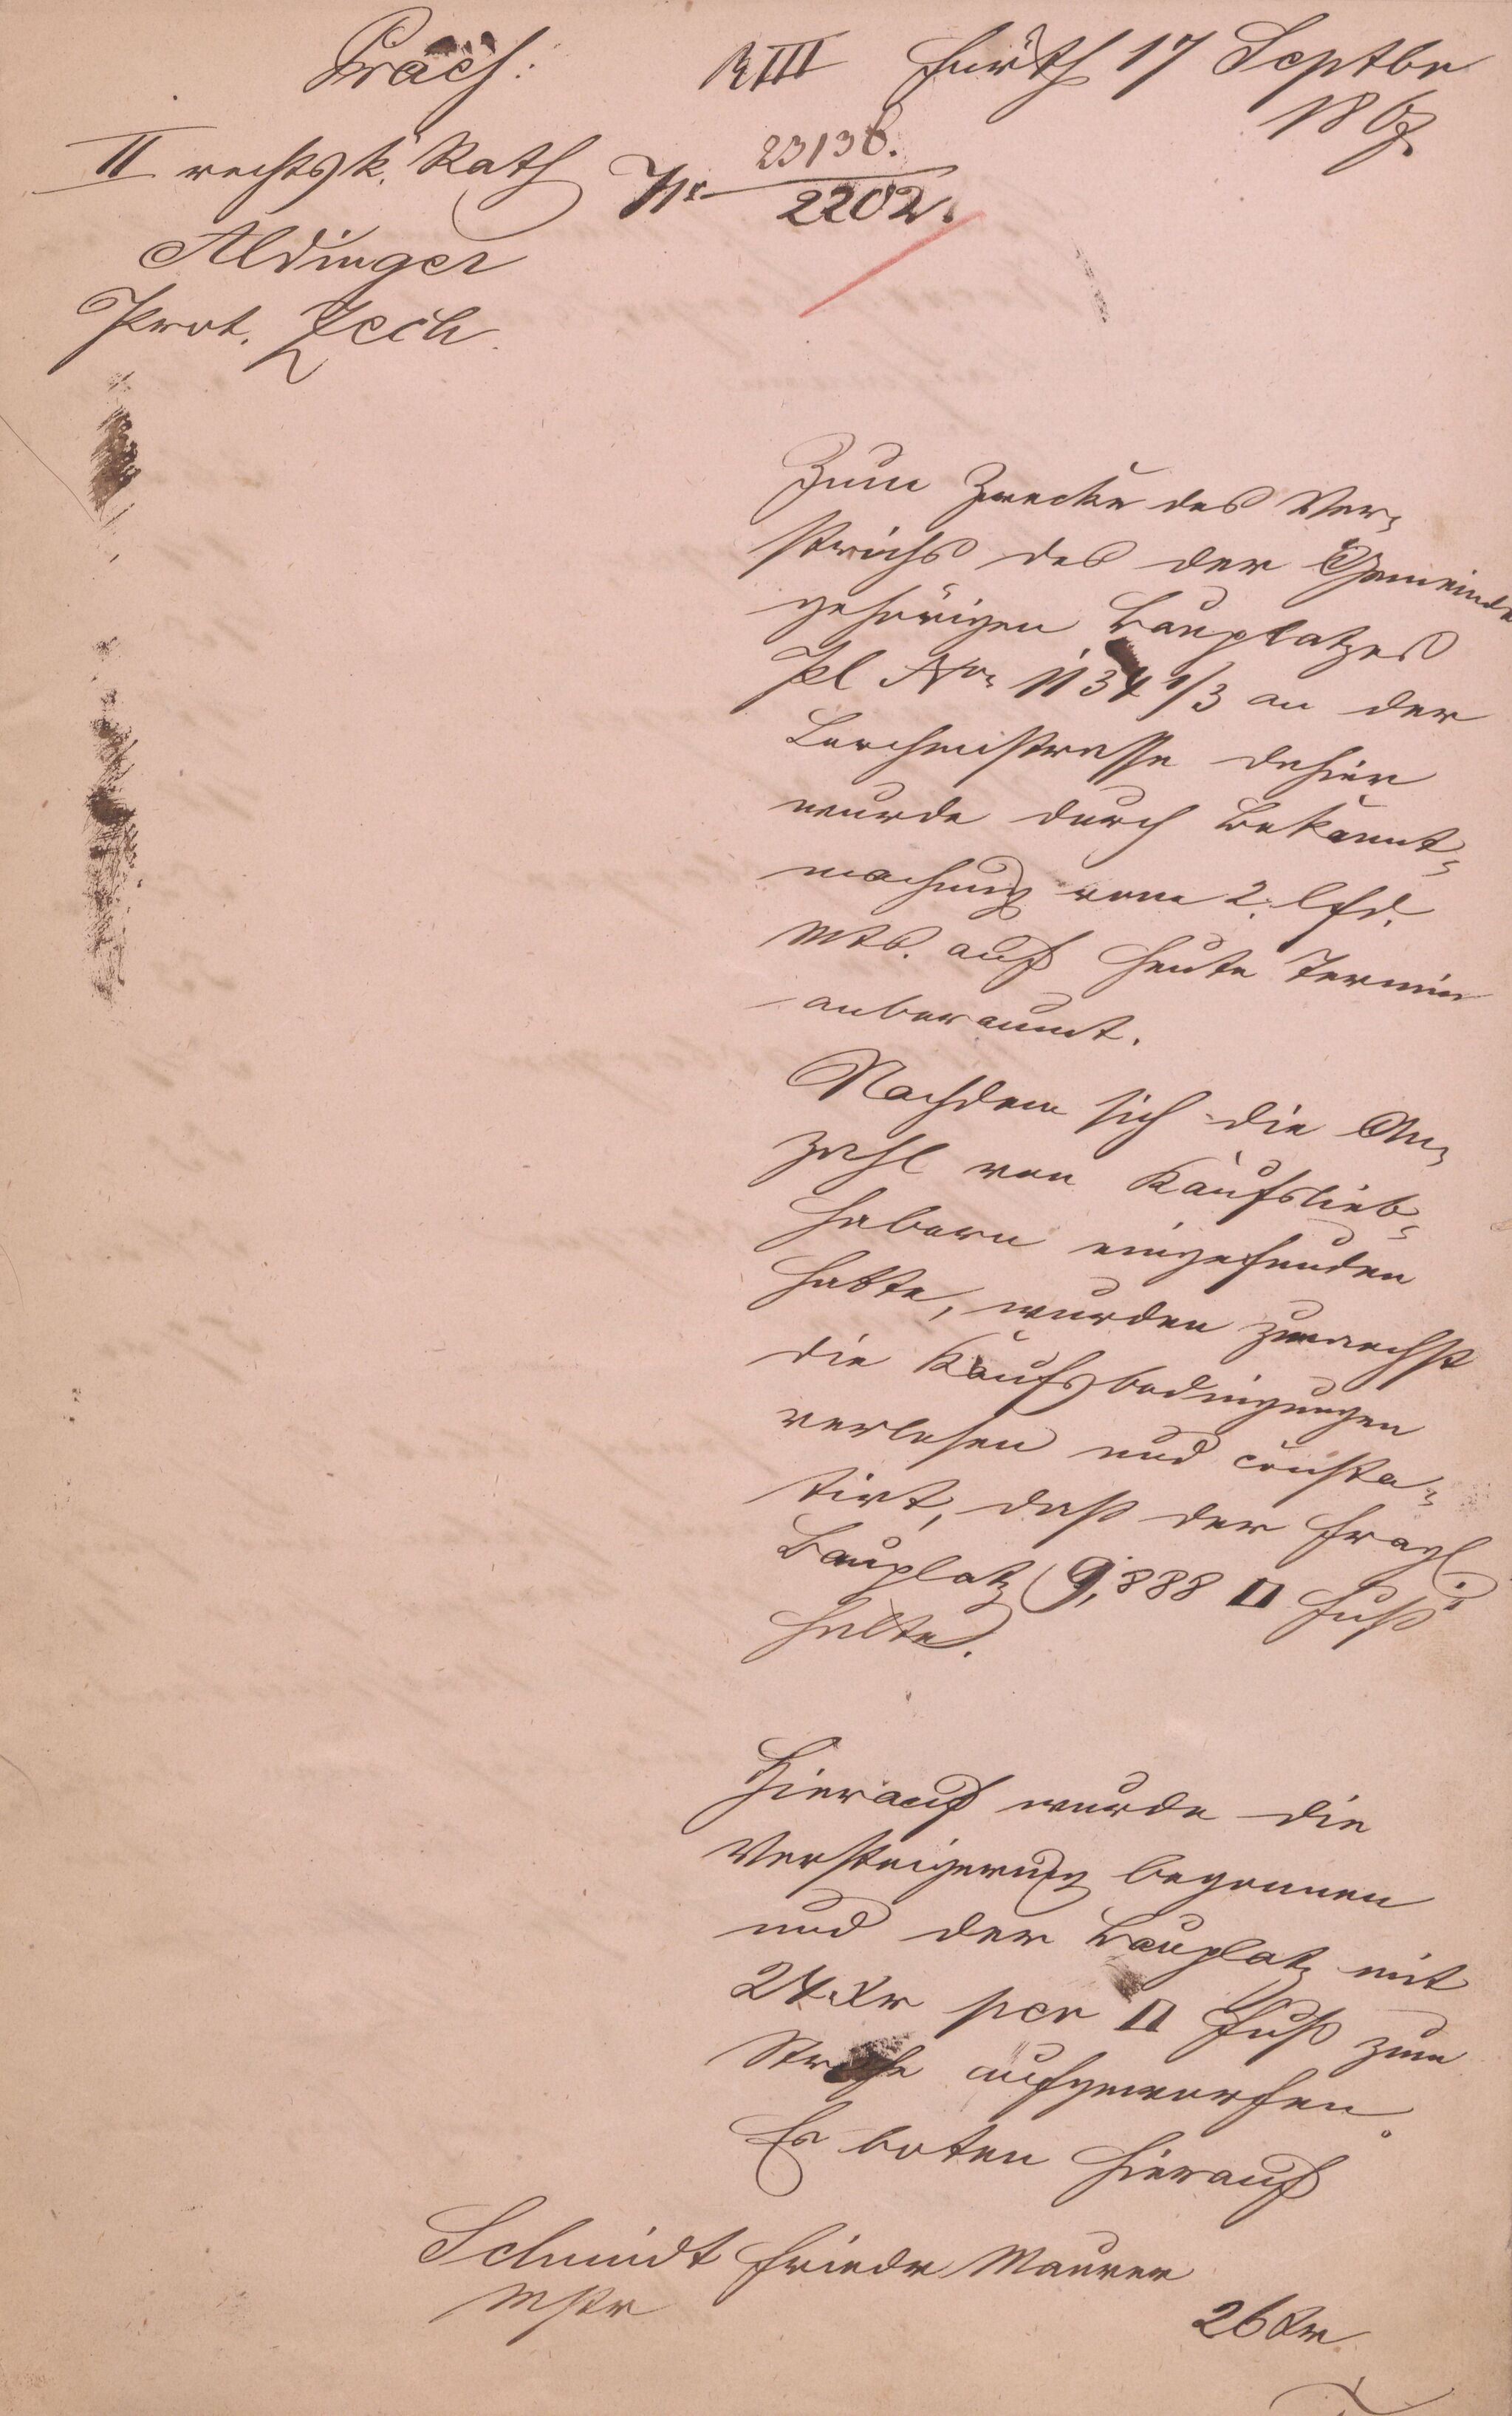 Präs:
II rechtsk. Rath
Aldinger
Prot. Zech.
RIII Fürth 17 Septbr
1867.
Nr 23136.
2202.
Zum Zwecke des Ver-
strichs des der Gemeinde
gehörigen Bauplatzes
Pl Nro 1134 1/3 an der
Lerchenstrasse dahier
wurde durch Bekannt-
machung vom 2. lfd.
Mts. auf heute Termin
anberaumt.
Nachdem sich die An-
zahl von Kaufslieb-
habern eingefunden
hatte, wurden zunaechst
die Kaufsbedingungen
verlesen und consta-
tirt, daß der fragl.
Bauplatz 9,888 □ Fuß
halte.
Hierauf wurde die
Versteigerung begonnen
und der Bauplatz mit
24 Kr per □ Fuß zum
Striche aufgeworfen.
Es boten hierauf
Schmidt Friedr Maurer
Mstr
26 Kr